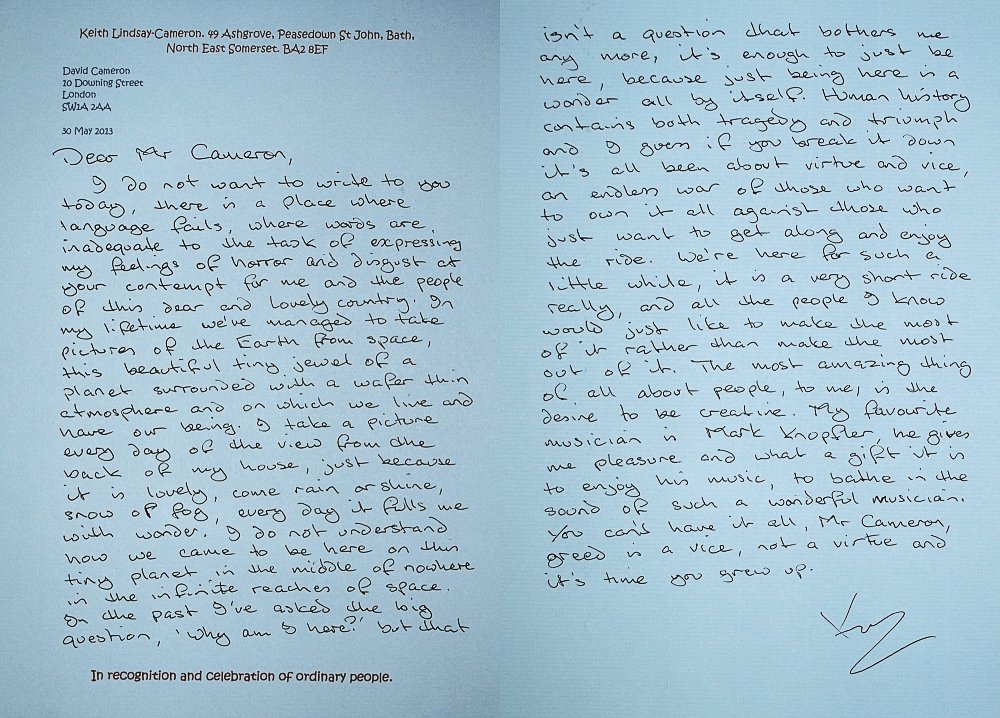 Keith Lindsay-Cameron. 49 Ashgrove, Peasedown St John, Bath,
North East Somerset. BA2 8EF
David Cameron
10 Downing Street
London
SW1A 2AA
30 May 2013
Dear Mr Cameron,
I do not want to write to you
today, there is a place where
language fails, where words are
inadequate to the task of expressing
my feelings of horror and disgust at
your contempt for me and the people
of this dear and lovely country. In
my lifetime we've managed to take
pictures of the Earth from space,
this beautiful tiny jewel of a
planet surrounded with a wafer thin
atmosphere and on which we live and
have our being. I take a picture
every day of the view from the
back of my house, just because
it is lovely, come rain or shine,
snow or fog, every day it fills me
with wonder. I do not understand
how we came to be here on this
tiny planet in the middle of nowhere
in the infinite reaches of space.
In the past I've asked the big
question, 'why am I here?' but that
In recognition and celebration of ordinary people.
isn't a question that bothers me
any more, it's enough to just be
here, because just being here is a
wonder all by itself. Human history
contains both tragedy and triumph
and I guess if you break it down
it's all been about virtue and vice,
an endless war of those who want
to own it all against those who
just want to get along and enjoy
the ride. We're here for such a
little while, it is a very short ride
really, and all the people I know
would just like to make the most
of it rather than make the most
out of it. The most amazing thing
of all about people, to me, is the
desire to be creative. My favourite
musician is Mark Knopfler, he gives
me pleasure and what a gift it is
to enjoy his music, to bathe in the
sound of such a wonderful musician.
You can't have it all, Mr Cameron,
greed is a vice, not a virtue and
it's time you grew up.